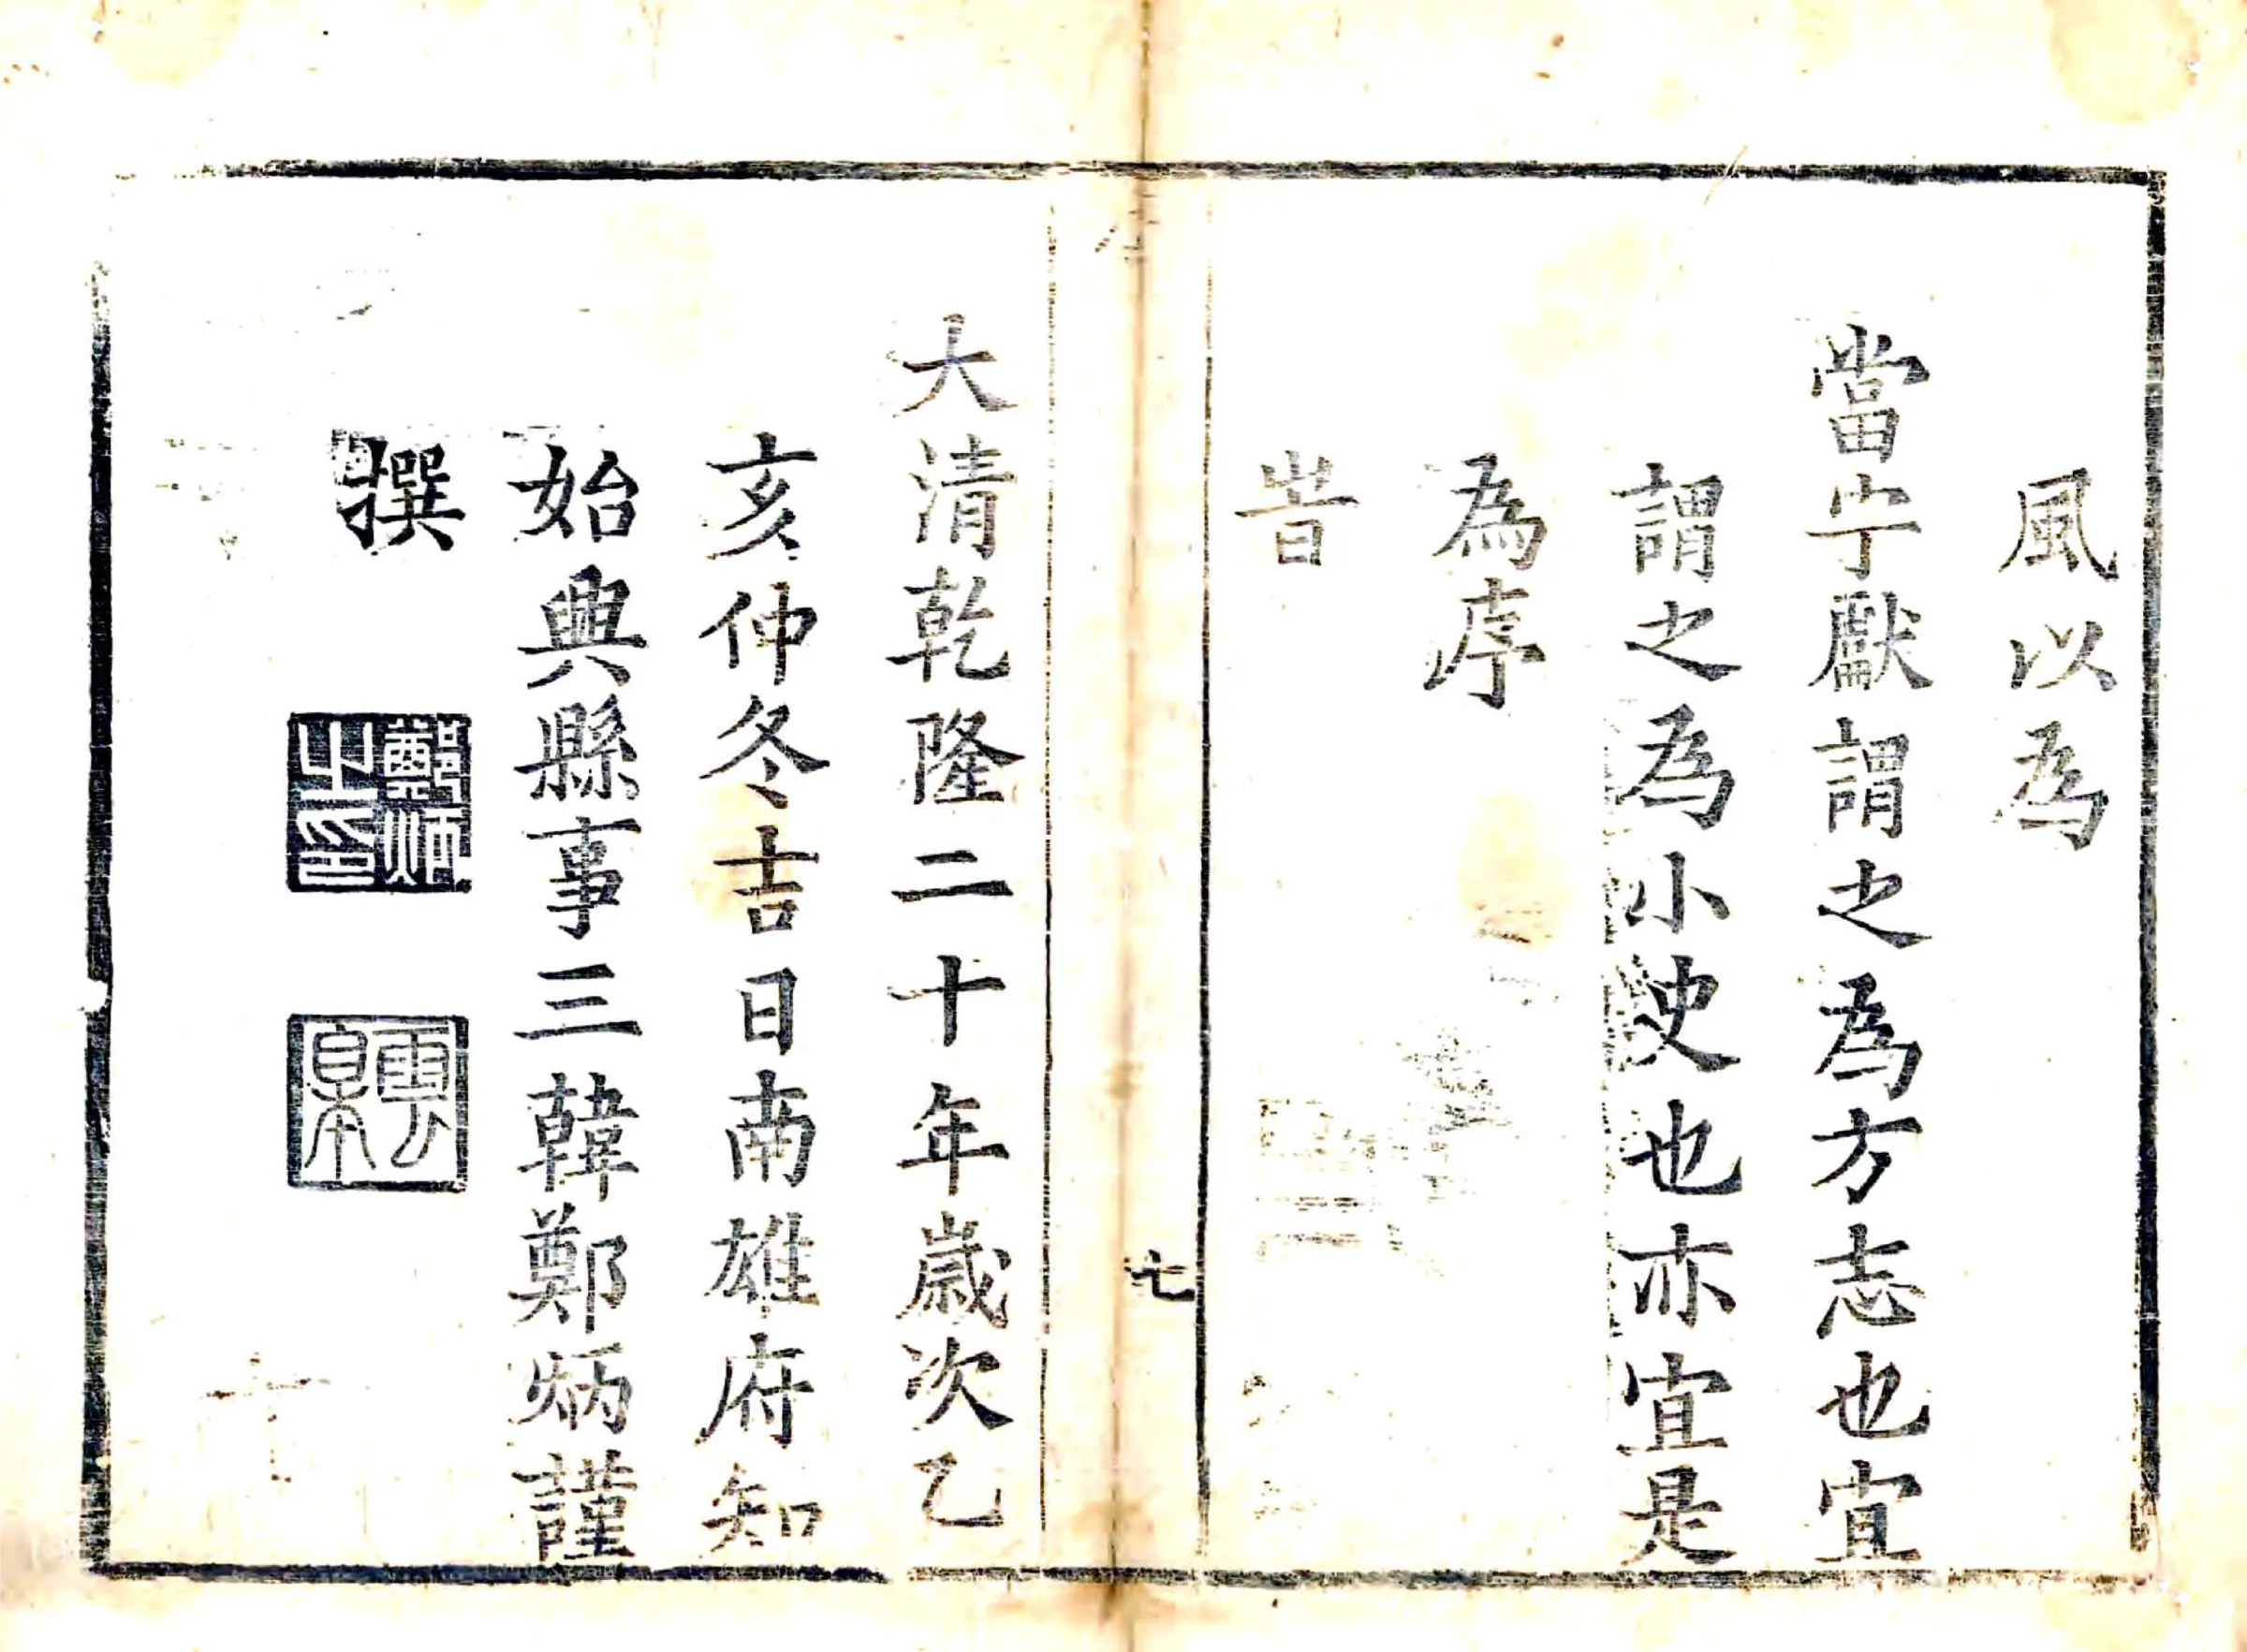 風以為
當宁獻謂之為方志也宜
謂之為小史也亦宜是
為序
旹
七
大清乾隆二十年歲次乙
亥仲冬吉日南雄府知
始興縣事三韓鄭炳謹
撰
鄭炳之印